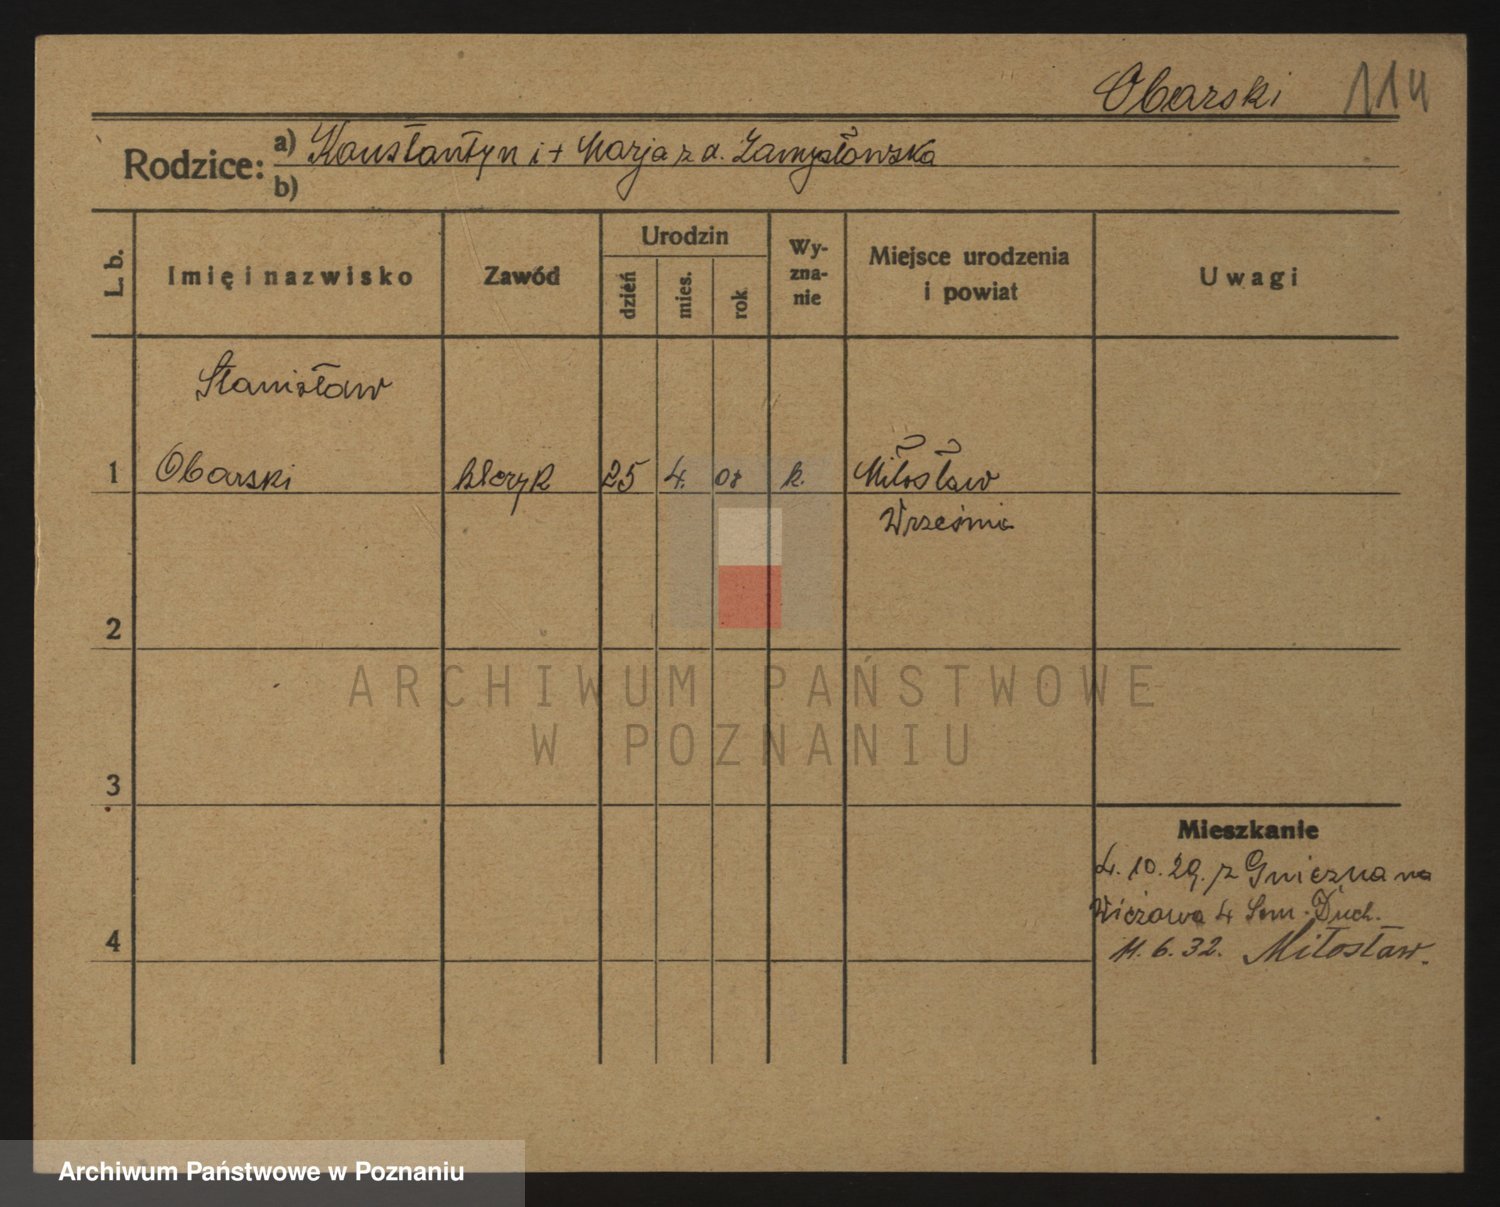 Obarski 114
Rodzice: a) Konstantyn i + Marja z d. Zamysłowska
b)
L. b.
Imię i nazwisko
Zawód
Urodzin
dzień
mies.
rok
Wy-
zna-
nie
Miejsce urodzenia
i powiat
Uwagi
Stanisław
1 Obarski kleryk 25 4. 08 k. Miłosław
Września
2
ARCHIWUM PAŃSTWOWE
W POZNANIU
3
Mieszkanie
4. 10. 29. z Gniezna na
Wieżowa 4 Sem. Duch.
4
11. 6. 32. Miłosław.
Archiwum Państwowe w Poznaniu